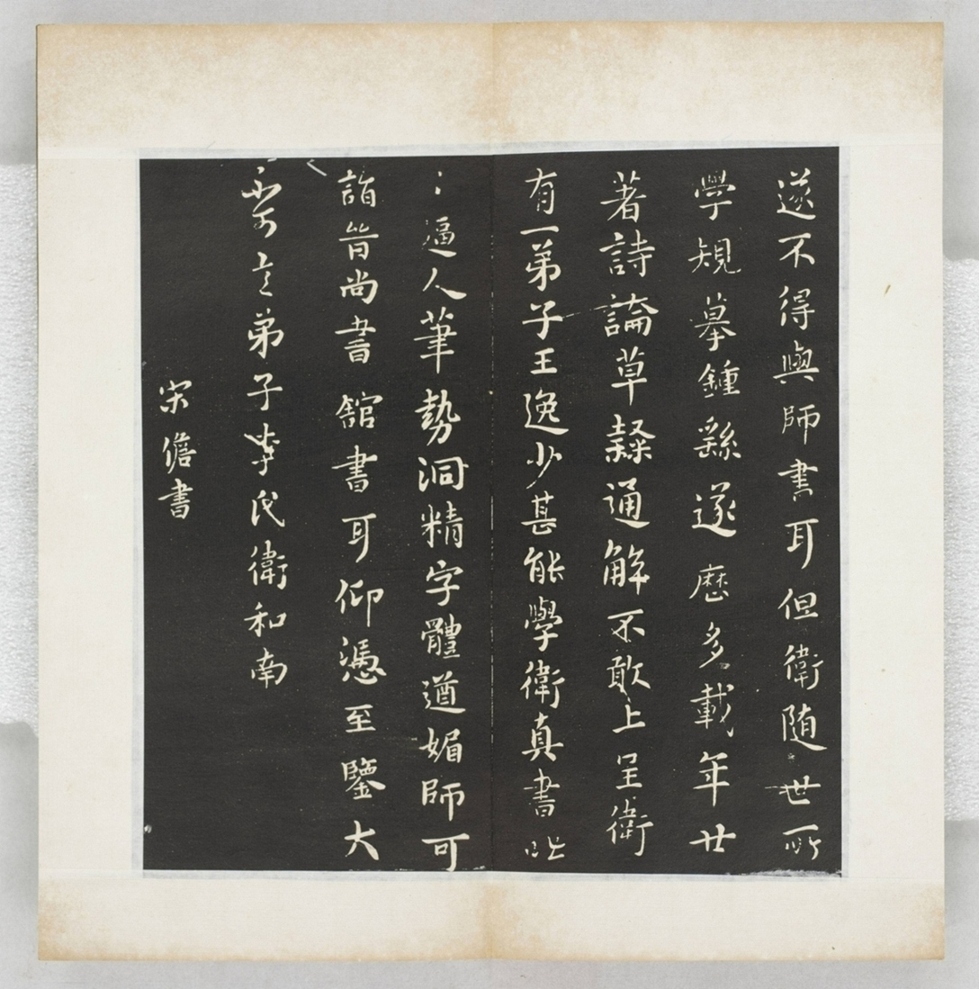 遂不得與師書耳但衛隨世所
學規摹鍾繇遂歷多載年廿
著詩論草隸通解不敢上呈衛
有一弟子王逸少甚能學衛真書咄
〻逼人筆勢洞精字體遒媚師可
詣晉尚書館書耳仰憑至鑒大
不可言弟子李氏衛和南
宋儋書